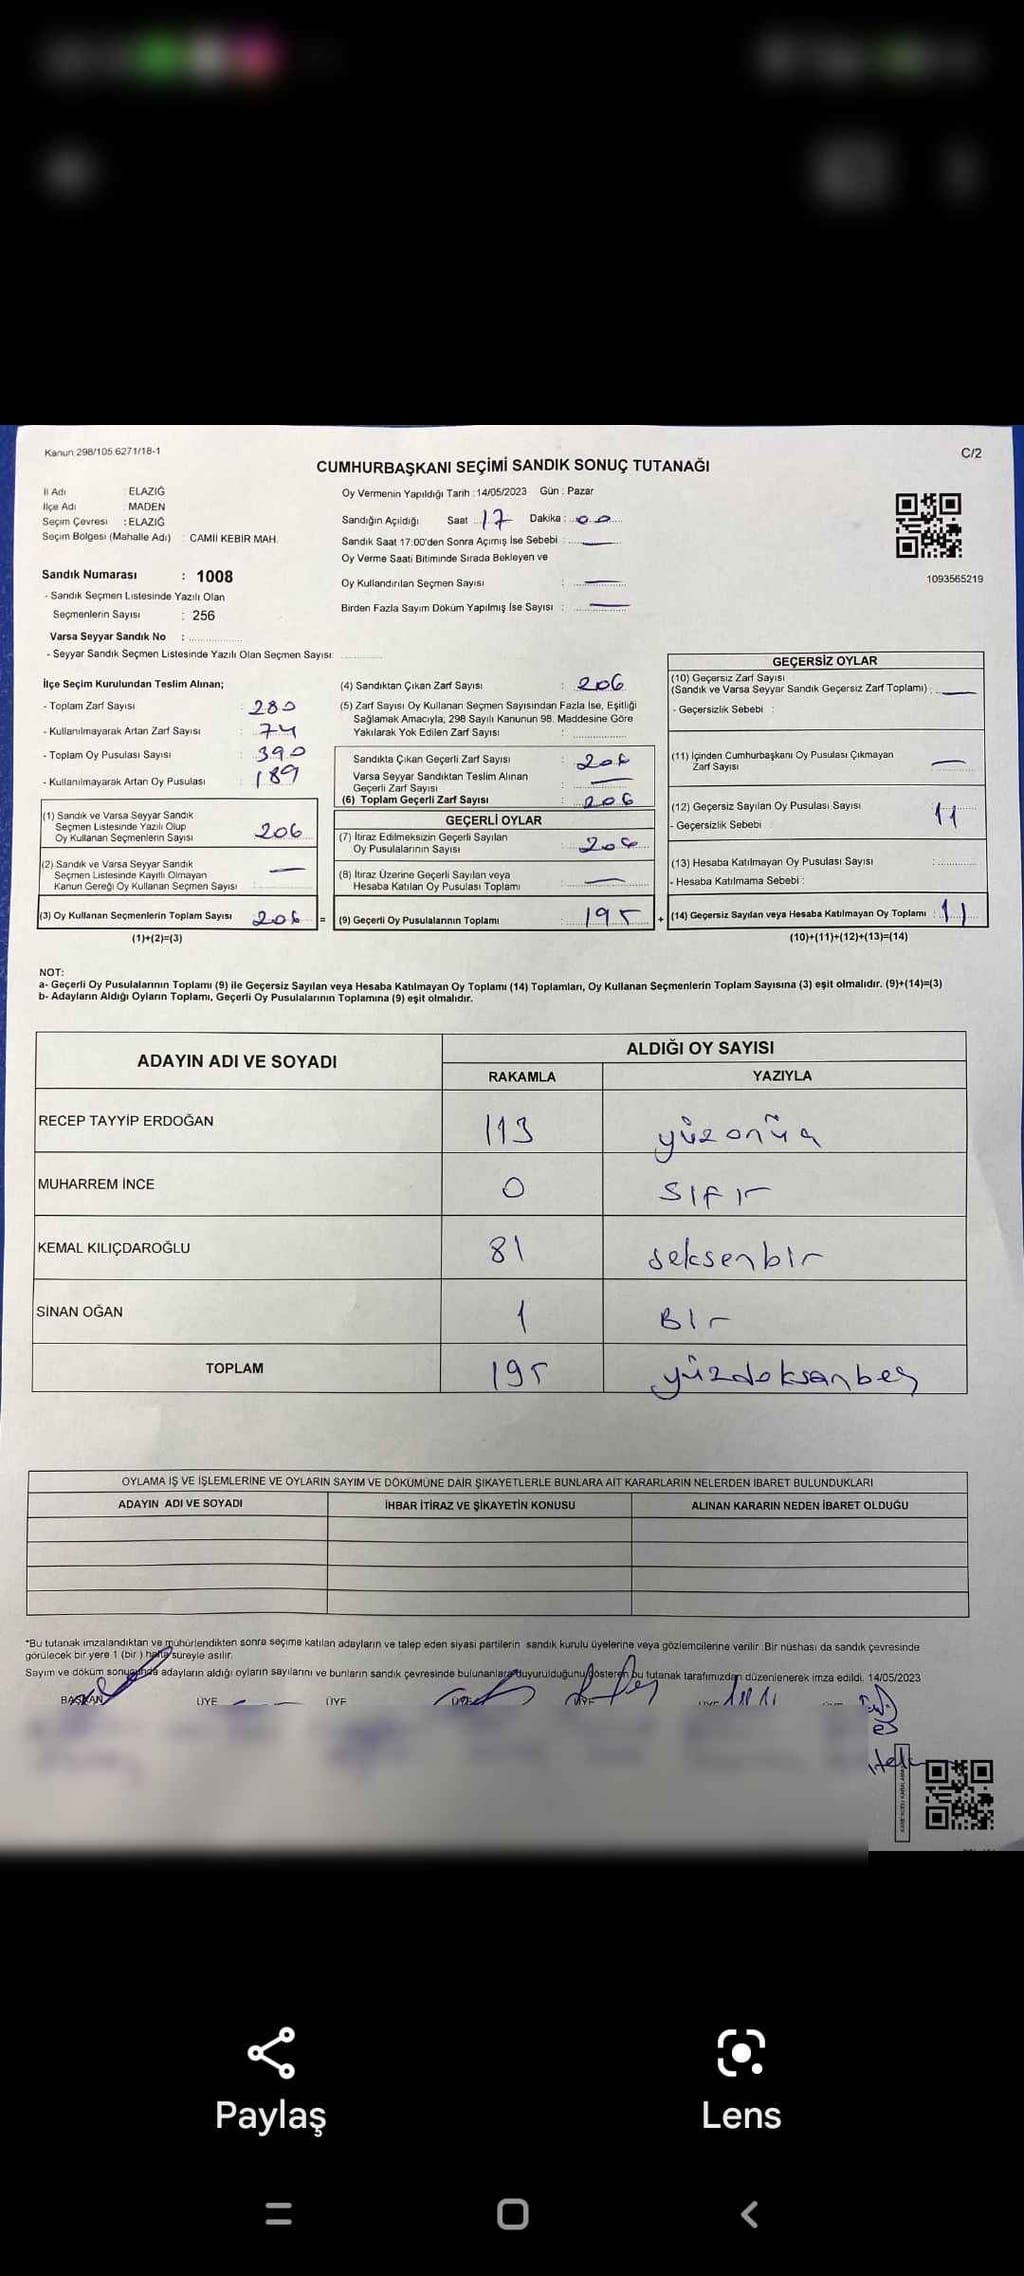 Kanun 298/105 6271/18-1
C/2
CUMHURBAŞKANI SEÇİMİ SANDIK SONUÇ TUTANAĞI
İl Adı : ELAZIĞ
İlçe Adı : MADEN
Seçim Çevresi : ELAZIĞ
Seçim Bölgesi (Mahalle Adı) : CAMİİ KEBİR MAH.
Oy Vermenin Yapıldığı Tarih :14/05/2023 Gün : Pazar
Sandığın Açıldığı Saat 17 Dakika : 00
Sandık Saat 17:00'den Sonra Açımış İse Sebebi : —
Oy Verme Saati Bitiminde Sırada Bekleyen ve
Oy Kullandırılan Seçmen Sayısı : —
Birden Fazla Sayım Döküm Yapılmış İse Sayısı : —
1093565219
Sandık Numarası : 1008
- Sandık Seçmen Listesinde Yazılı Olan
Seçmenlerin Sayısı : 256
Varsa Seyyar Sandık No :
- Seyyar Sandık Seçmen Listesinde Yazılı Olan Seçmen Sayısı:
İlçe Seçim Kurulundan Teslim Alınan;
- Toplam Zarf Sayısı : 280
- Kullanılmayarak Artan Zarf Sayısı : 74
- Toplam Oy Pusulası Sayısı : 390
- Kullanılmayarak Artan Oy Pusulası : 189
(1) Sandık ve Varsa Seyyar Sandık
Seçmen Listesinde Yazılı Olup
Oy Kullanan Seçmenlerin Sayısı 206
(2) Sandık ve Varsa Seyyar Sandık
Seçmen Listesinde Kayıtlı Olmayan
Kanun Gereği Oy Kullanan Seçmen Sayısı —
(3) Oy Kullanan Seçmenlerin Toplam Sayısı 206 =
(1)+(2)=(3)
(4) Sandıktan Çıkan Zarf Sayısı : 206
(5) Zarf Sayısı Oy Kullanan Seçmen Sayısından Fazla İse, Eşitliği
Sağlamak Amacıyla, 298 Sayılı Kanunun 98. Maddesine Göre
Yakılarak Yok Edilen Zarf Sayısı :
Sandıkta Çıkan Geçerli Zarf Sayısı : 206
Varsa Seyyar Sandıktan Teslim Alınan
Geçerli Zarf Sayısı : —
(6) Toplam Geçerli Zarf Sayısı : 206
GEÇERLİ OYLAR
(7) İtiraz Edilmeksizin Geçerli Sayılan
Oy Pusulalarının Sayısı : 206
(8) İtiraz Üzerine Geçerli Sayılan veya
Hesaba Katılan Oy Pusulası Toplamı : —
(9) Geçerli Oy Pusulalarının Toplamı : 195 +
GEÇERSİZ OYLAR
(10) Geçersiz Zarf Sayısı
(Sandık ve Varsa Seyyar Sandık Geçersiz Zarf Toplamı) : —
- Geçersizlik Sebebi :
(11) İçinden Cumhurbaşkanı Oy Pusulası Çıkmayan
Zarf Sayısı —
(12) Geçersiz Sayılan Oy Pusulası Sayısı 11
- Geçersizlik Sebebi :
(13) Hesaba Katılmayan Oy Pusulası Sayısı :
- Hesaba Katılmama Sebebi :
(14) Geçersiz Sayılan veya Hesaba Katılmayan Oy Toplamı : 11
(10)+(11)+(12)+(13)=(14)
NOT:
a- Geçerli Oy Pusulalarının Toplamı (9) ile Geçersiz Sayılan veya Hesaba Katılmayan Oy Toplamı (14) Toplamları, Oy Kullanan Seçmenlerin Toplam Sayısına (3) eşit olmalıdır. (9)+(14)=(3)
b- Adayların Aldığı Oyların Toplamı, Geçerli Oy Pusulalarının Toplamına (9) eşit olmalıdır.
ADAYIN ADI VE SOYADI ALDIĞI OY SAYISI
RAKAMLA YAZIYLA
RECEP TAYYİP ERDOĞAN 113 yüzonüç
MUHARREM İNCE 0 sıfır
KEMAL KILIÇDAROĞLU 81 seksenbir
SİNAN OĞAN 1 Bir
TOPLAM 195 yüzdoksanbeş
OYLAMA İŞ VE İŞLEMLERİNE VE OYLARIN SAYIM VE DÖKÜMÜNE DAİR ŞİKAYETLERLE BUNLARA AİT KARARLARIN NELERDEN İBARET BULUNDUKLARI
ADAYIN ADI VE SOYADI İHBAR İTİRAZ VE ŞİKAYETİN KONUSU ALINAN KARARIN NEDEN İBARET OLDUĞU
*Bu tutanak imzalandıktan ve mühürlendikten sonra seçime katılan adayların ve talep eden siyasi partilerin sandık kurulu üyelerine veya gözlemcilerine verilir. Bir nüshası da sandık çevresinde
görülecek bir yere 1 (bir ) hafta süreyle asılır.
Sayım ve döküm sonucunda adayların aldığı oyların sayılarını ve bunların sandık çevresinde bulunanlara duyurulduğunu gösteren bu tutanak tarafımızdan düzenlenerek imza edildi. 14/05/2023
BAŞKAN ÜYE ÜYE ÜYE ÜYE
Paylaş
Lens